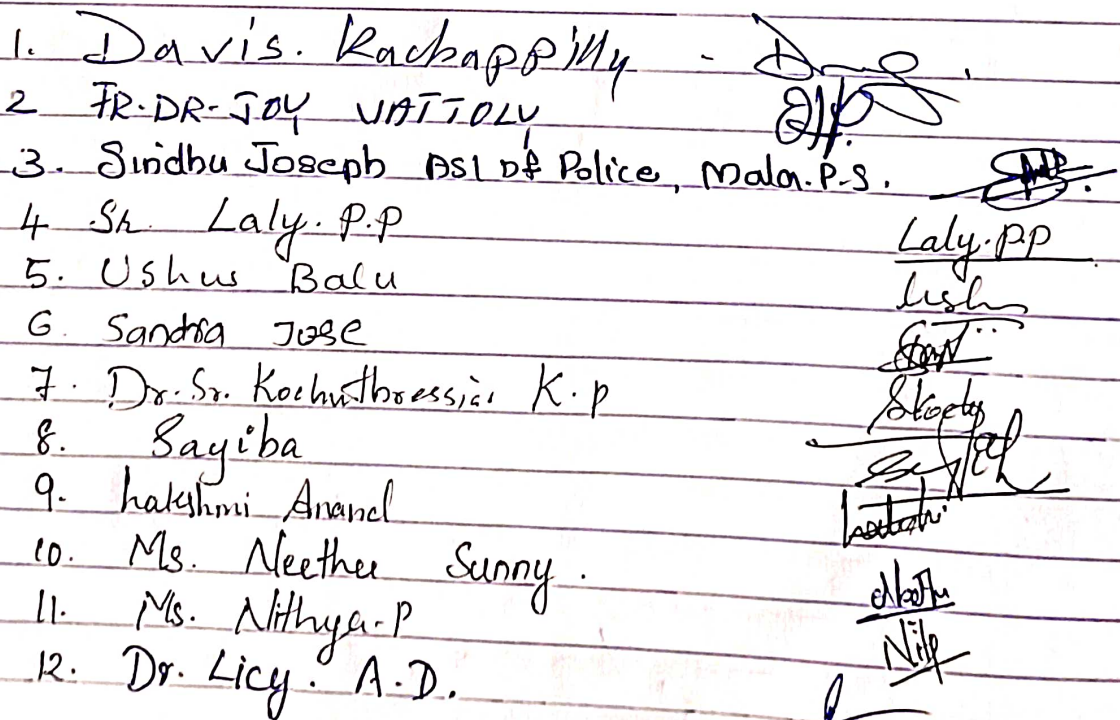 1. Davis. Kachappilly -
2 FR. DR. JOY VATTOLY
3. Sindhu Joseph ASI Of Police, Mala. P.S.
4 Sr. Laly. P.P Laly. P.P
5. Ushus Balu Ush
6. Sandra Jose
7. Dr. Sr. Kochuthressia K.P
8. Sayiba
9. Lakshmi Anand
10. Ms. Neethu Sunny. Neethu
11. Ms. Nithya. P
12. Dr. Licy. A.D.